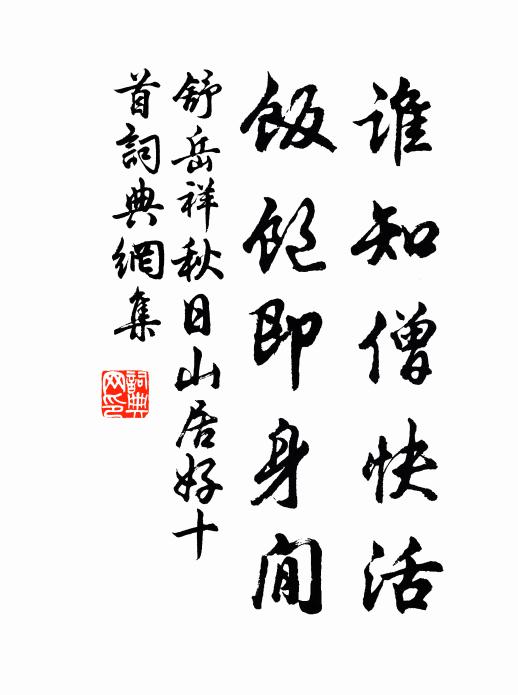 誰知僧快活
飯飽即身閒
舒岳祥秋日山居好十
首詞典網集
詞典
网印